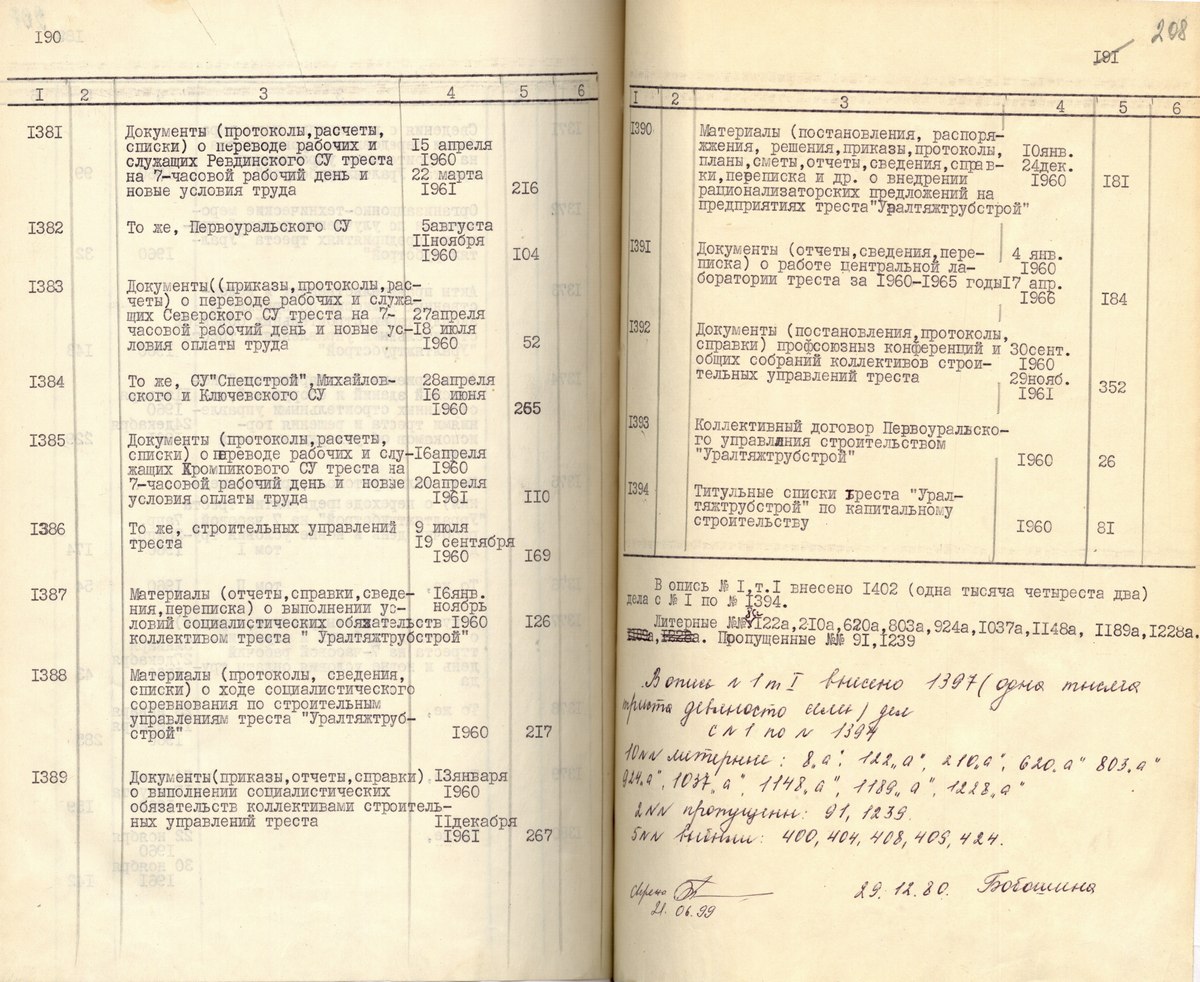 190
I 2 3 4 5 6
I381 Документы (протоколы,расчеты,
списки) о переводе рабочих и 15 апреля
служащих Ревдинского СУ треста I960
на 7-часовой рабочий день и 22 марта
новые условия труда I96I 2I6
I382 То же, Первоуральского СУ 5августа
IIноября
I960 I04
I383 Документы((приказы,протоколы,рас-
четы) о переводе рабочих и служа-
щих Северского СУ треста на 7- 27апреля
часовой рабочий день и новые ус-I8 июля
ловия оплаты труда I960 52
I384 То же, СУ"Спецстрой",Михайлов- 28апреля
ского и Ключевского СУ I6 июня
I960 265
I385 Документы (протоколы,расчеты,
списки) о переводе рабочих и слу-I6апреля
жащих Хромпикового СУ треста на I960
7-часовой рабочий день и новые 20апреля
условия оплаты труда I96I II0
I386 То же, строительных управлений 9 июля
треста I9 сентября
I960 I69
I387 Материалы (отчеты,справки,сведе- I6янв.
ния,переписка) о выполнении ус- ноябрь
ловий социалистических обязательств I960 I26
коллективом треста " Уралтяжтрубстрой"
I388 Материалы (протоколы, сведения,
списки) о ходе социалистического
соревнования по строительным
управлениям треста "Уралтяжтруб-
строй" I960 2I7
I389 Документы(приказы,отчеты,справки) I3января
о выполнении социалистических I960
обязательств коллективами строитель-
ных управлений треста IIдекабря
I96I 267
208
I9I
I 2 3 4 5 6
I390 Материалы (постановления, распоря-
жжения, решения,приказы,протоколы, I0янв.
планы,сметы,отчеты,сведения,справ- 24дек.
ки,переписка и др. о внедрении I960 I8I
рационализаторских предложений на
предприятиях треста"Уралтяжтрубстрой"
I39I Документы (отчеты,сведения,пере- 4 янв.
писка) о работе центральной ла- I960
боратории треста за I960-I965 годыI7 апр.
I966 I84
I392 Документы (постановления,протоколы,
справки) профсоюзных конференций и 30сент.
общих собраний коллективов строи- I960
тельных управлений треста 29нояб.
I96I 352
I393 Коллективный договор Первоуральско-
го управляния строительством
"Уралтяжтрубстрой" I960 26
I394 Титульные списки треста "Урал-
тяжтрубстрой" по капитальному
строительству I960 8I
В опись № I,т.I внесено I402 (одна тысяча четыреста два)
дела с № I по № I394.
8а
Литерные №№ I22а,2I0а,620а,803а,924а,I037а,II48а, II89а,I228а.
Пропущенные №№ 9I,I239
В опись N 1 т I внесено 1397 (одна тысяча
триста девяносто семь) дел
с N 1 по N 1394
10NN литерные: 8„а", 122„а", 210„а", 620„а" 803„а"
924„а", 1037„а", 1148„а", 1189„а", 1228„а"
2NN пропущены: 91, 1239.
5NN выбыли: 400, 404, 408, 409, 424.
29.12.80. Бабошина
сверено
21.06.99